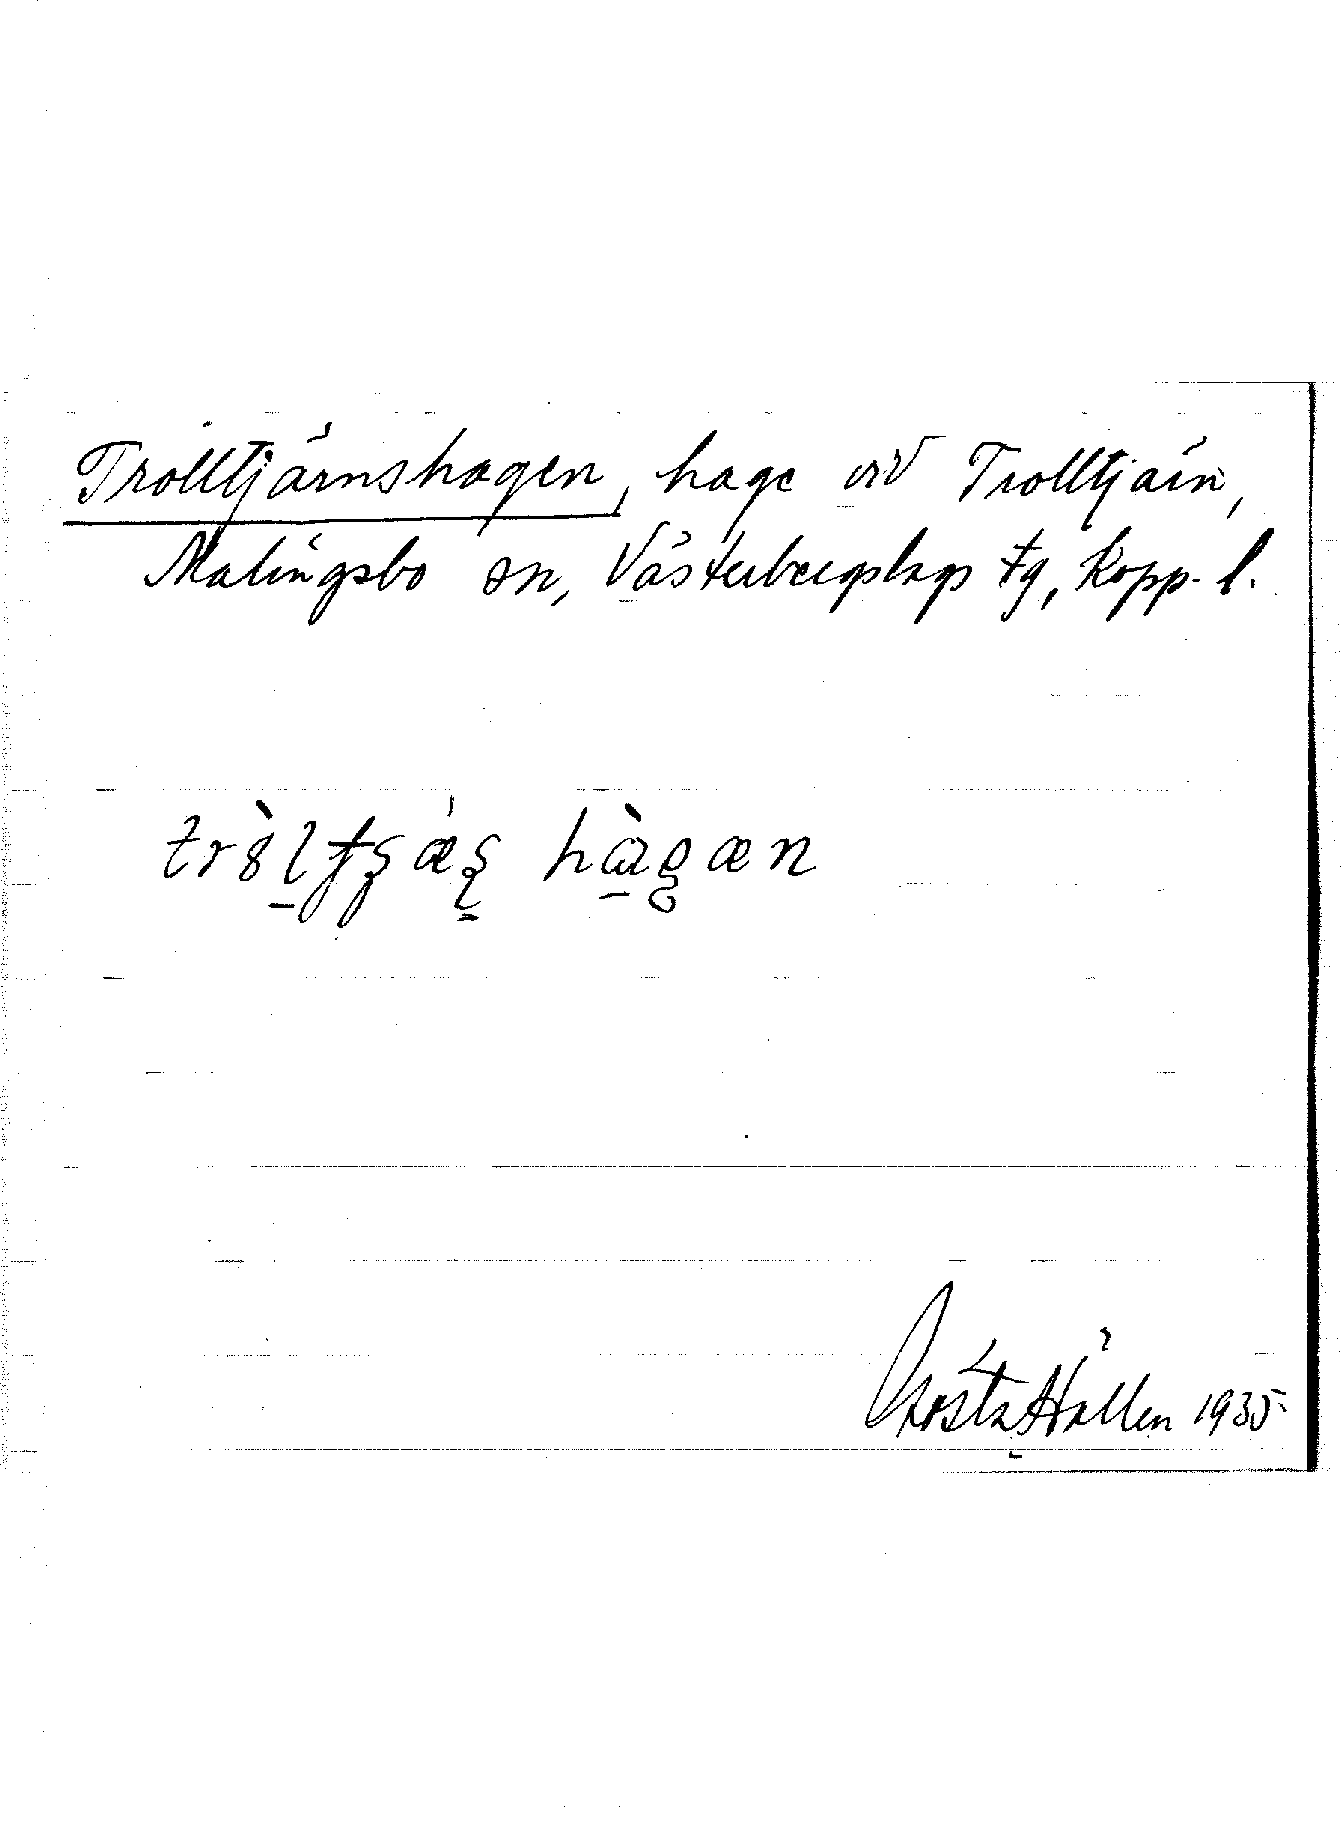 Trolltjärnshagen, hage vid Trolltjärn,
Malingsbo sn, Västerbergslags tg, Kopp. l.
hàgæn
Gösta Hallen 1935